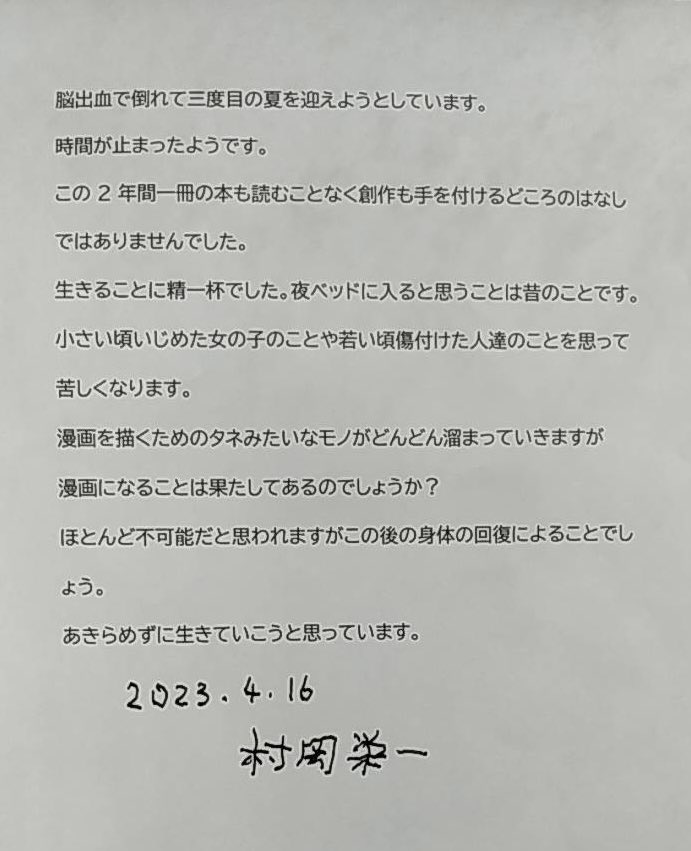 脳出血で倒れて三度目の夏を迎えようとしています。
時間が止まったようです。
この 2 年間一冊の本も読むことなく創作も手を付けるどころのはなし
ではありませんでした。
生きることに精一杯でした。夜ベッドに入ると思うことは昔のことです。
小さい頃いじめた女の子のことや若い頃傷付けた人達のことを思って
苦しくなります。
漫画を描くためのタネみたいなモノがどんどん溜まっていきますが
漫画になることは果たしてあるのでしょうか？
ほとんど不可能だと思われますがこの後の身体の回復によることでし
ょう。
あきらめずに生きていこうと思っています。
2023.4.16
村岡栄一